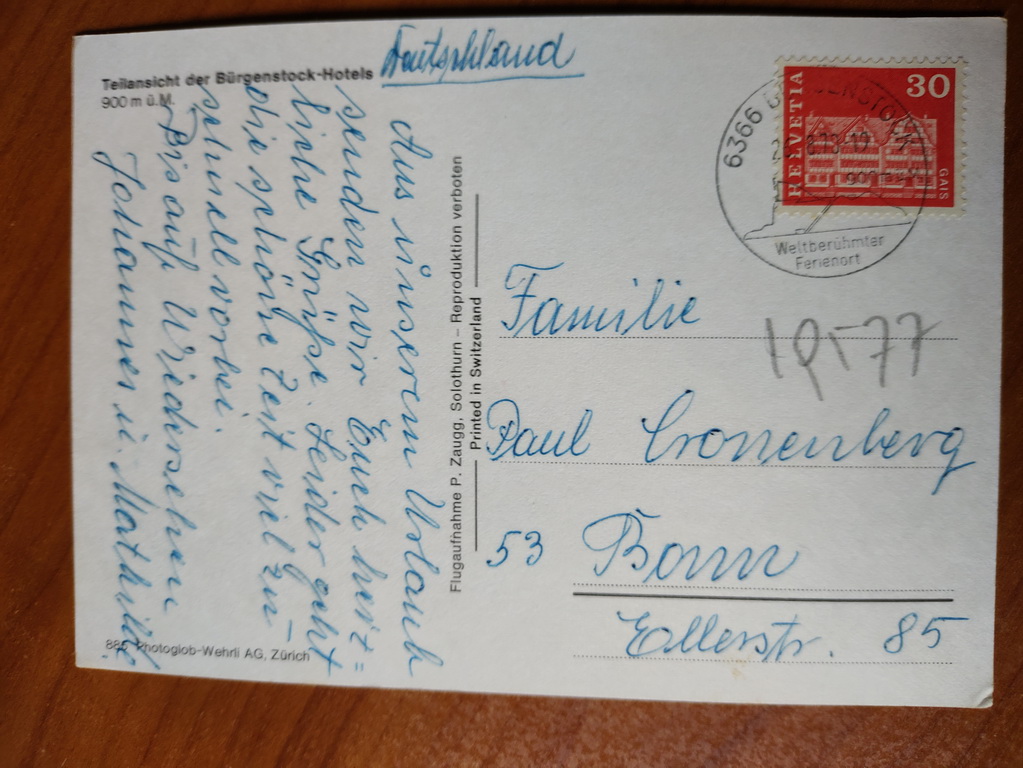 Teilansicht der Bürgenstock-Hotels
900 m ü.M.
Deutschland
Aus unserem Urlaub
senden wir Euch herz=
liche Grüße. Leider geht
die schöne Zeit viel zu
schnell vorbei.
Bis auf Wiedersehen
Johannes u. Mathilde
Flugaufnahme P. Zaugg, Solothurn – Reproduktion verboten
Printed in Switzerland
Photoglob-Wehrli AG, Zürich
HELVETIA
30
GAIS
6366 BÜRGENSTOCK
Weltberühmter
Ferienort
Familie
Paul Cronenberg
53 Bonn
Ellerstr. 85